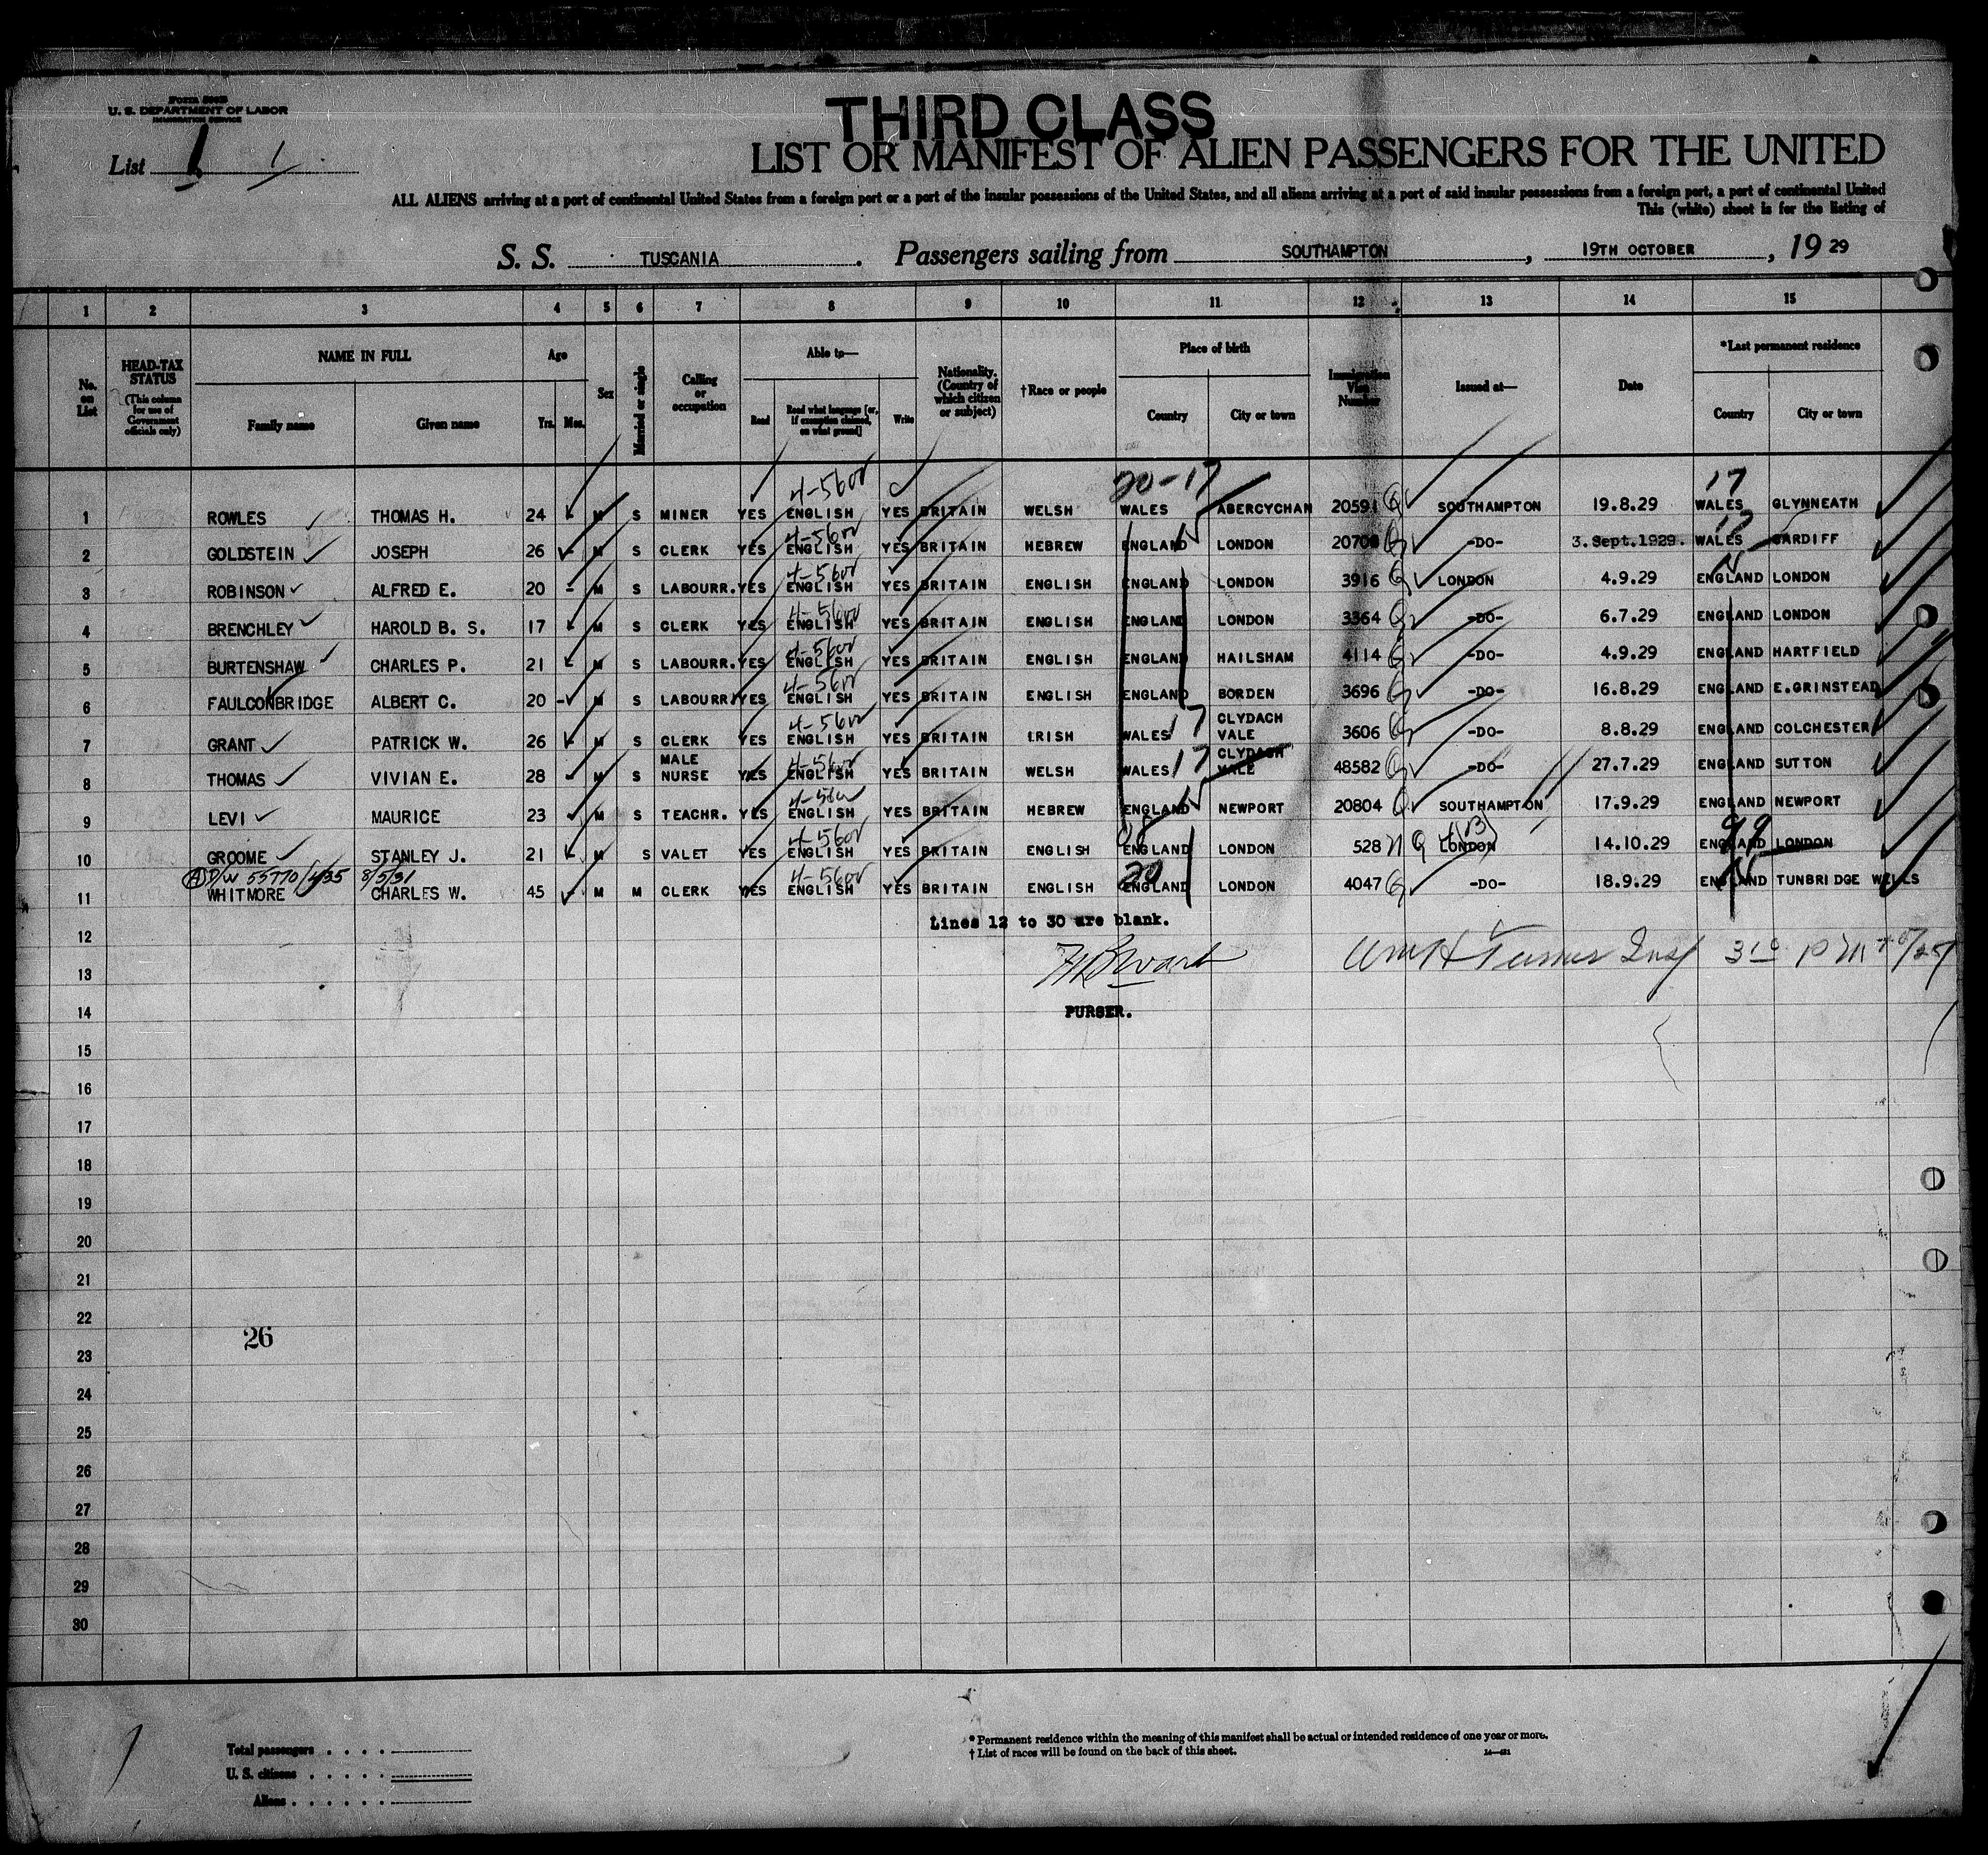 Form 500B
U. S. DEPARTMENT OF LABOR
IMMIGRATION SERVICE
List 1 1
THIRD CLASS
LIST OR MANIFEST OF ALIEN PASSENGERS FOR THE UNITED
ALL ALIENS arriving at a port of continental United States from a foreign port or a port of the insular possessions of the United States, and all aliens arriving at a port of said insular possessions from a foreign port, a port of continental United
This (white) sheet is for the listing of
S. S. TUSCANIA. Passengers sailing from SOUTHAMPTON, 19TH OCTOBER, 19 29
1 2 3 4 5 6 7 8 9 10 11 12 13 14 15
No. on List
HEAD-TAX STATUS (This column for use of Government officials only)
NAME IN FULL Family name Given name
Age Yrs. Mos.
Sex
Married or single
Calling or occupation
Able to— Read Read what language [or, if exemption claimed, on what ground] Write
Nationality. (Country of which citizen or subject)
†Race or people
Place of birth Country City or town
Immigration Visa Number
Issued at—
Date
*Last permanent residence Country City or town
4-560r 20-17 17
1 ROWLES THOMAS H. 24 - M S MINER YES ENGLISH YES BRITAIN WELSH WALES ABERCYCHAN 20591 SOUTHAMPTON 19.8.29 WALES GLYNNEATH
2 GOLDSTEIN JOSEPH 26 - M S CLERK YES ENGLISH YES BRITAIN HEBREW ENGLAND LONDON 20708 -DO- 3. Sept.1929. WALES CARDIFF
3 ROBINSON ALFRED E. 20 - M S LABOURR. YES ENGLISH YES BRITAIN ENGLISH ENGLAND LONDON 3916 LONDON 4.9.29 ENGLAND LONDON
4 BRENCHLEY HAROLD B. S. 17 - M S CLERK YES ENGLISH YES BRITAIN ENGLISH ENGLAND LONDON 3364 -DO- 6.7.29 ENGLAND LONDON
5 BURTENSHAW CHARLES P. 21 - M S LABOURR. YES ENGLISH YES BRITAIN ENGLISH ENGLAND HAILSHAM 4114 -DO- 4.9.29 ENGLAND HARTFIELD
6 FAULCONBRIDGE ALBERT C. 20 - M S LABOURR. YES ENGLISH YES BRITAIN ENGLISH ENGLAND BORDEN 3696 -DO- 16.8.29 ENGLAND E.GRINSTEAD
7 GRANT PATRICK W. 26 - M S CLERK YES ENGLISH YES BRITAIN IRISH WALES 17 CLYDACH VALE 3606 -DO- 8.8.29 ENGLAND COLCHESTER
8 THOMAS VIVIAN E. 28 - M S MALE NURSE YES ENGLISH YES BRITAIN WELSH WALES 17 CLYDACH VALE 48582 -DO- 27.7.29 ENGLAND SUTTON
9 LEVI MAURICE 23 - M S TEACHR. YES ENGLISH YES BRITAIN HEBREW ENGLAND NEWPORT 20804 SOUTHAMPTON 17.9.29 ENGLAND NEWPORT
10 GROOME STANLEY J. 21 - M S VALET YES ENGLISH YES BRITAIN ENGLISH ENGLAND LONDON 528 LONDON 14.10.29 ENGLAND LONDON 99
8/5/31
11 WHITMORE CHARLES W. 45 - M M CLERK YES ENGLISH YES BRITAIN ENGLISH ENGLAND 20 LONDON 4047 -DO- 18.9.29 ENGLAND TUNBRIDGE WELLS
Lines 12 to 30 are blank.
12
13
14 PURSER.
15
16
17
18
19
20
21
22
26
23
24
25
26
27
28
29
30
Total passengers . . . .
U. S. citizens . . . . .
Aliens . . . . . .
* Permanent residence within the meaning of this manifest shall be actual or intended residence of one year or more.
† List of races will be found on the back of this sheet.